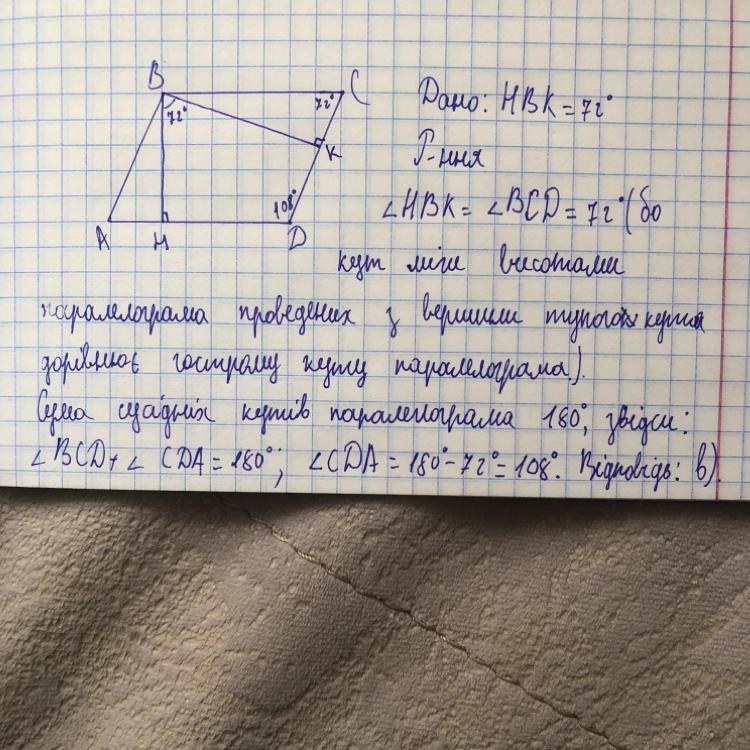 B
C
72°
72°
K
108°
A
H
D
Дано: HBK = 72°
Р-ння
∠HBK = ∠BCD = 72° (бо
кут між висотами
паралелограма проведених з вершини тупого кута
дорівнює гострому куту паралелограма).
Сума сусідніх кутів паралелограма 180°, звідси:
∠BCD + ∠CDA = 180°; ∠CDA = 180° - 72° = 108°. Відповідь: в).